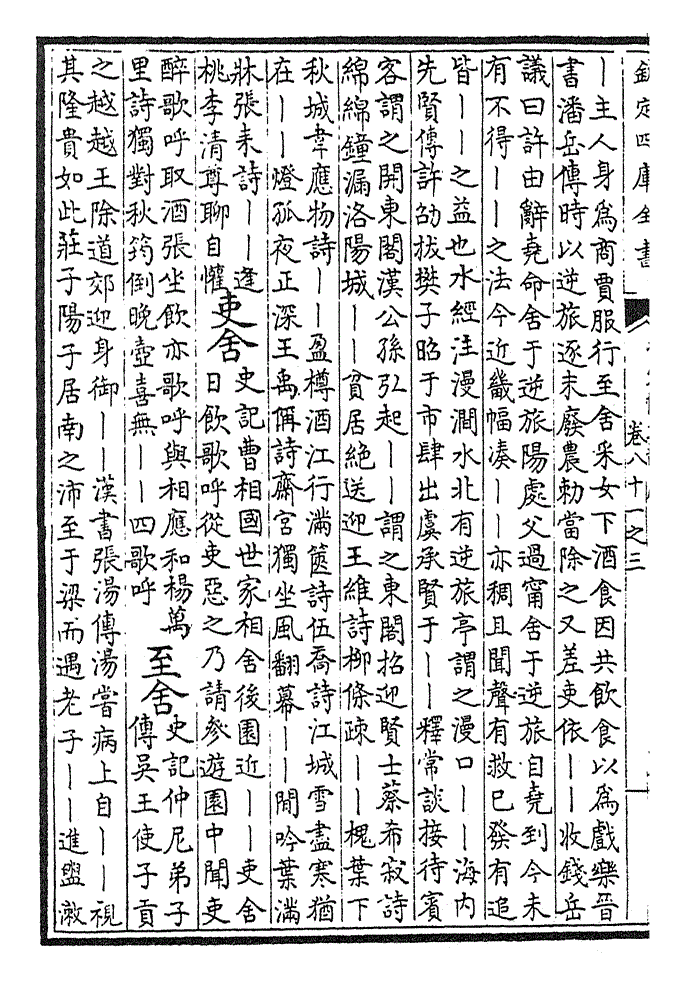 欽定四庫全書
卷八十一之三
｜主人身為商賈服行至舍采女下酒食因共飲食以為戲樂晉
書潘岳傳時以逆旅逐末廢農勅當除之又差吏依｜｜收錢岳
議曰許由辭堯命舍于逆旅陽處父過甯舍于逆旅自堯到今未
有不得｜｜之法今近畿幅湊｜｜亦稠且聞聲有救已發有追
皆｜｜之益也水經注漫澗水北有逆旅亭謂之漫口｜｜海内
先賢傳許劭拔樊子昭于市肆出虞承賢于｜｜釋常談接待賓
客謂之開東閣漢公孫弘起｜｜謂之東閣招迎賢士蔡希寂詩
綿綿鐘漏洛陽城｜｜貧居絶送迎王維詩柳條疎｜｜槐葉下
秋城韋應物詩｜｜盈樽酒江行滿篋詩伍喬詩江城雪盡寒猶
在｜｜燈孤夜正深王禹偁詩齋宮獨坐風翻幕｜｜閒吟葉滿
牀張耒詩｜｜逢
桃李清尊聊自懽
吏舍
史記曹相國世家相舍後園近｜｜吏舍
日飲歌呼從吏惡之乃請參遊園中聞吏
醉歌呼取酒張坐飲亦歌呼與相應和楊萬
里詩獨對秋筠倒晚壺喜無｜｜四歌呼
至舍
史記仲尼弟子
傳吳王使子貢
之越越王除道郊迎身御｜｜漢書張湯傳湯嘗病上自｜｜視
其隆貴如此莊子陽子居南之沛至于梁而遇老子｜｜進盥漱